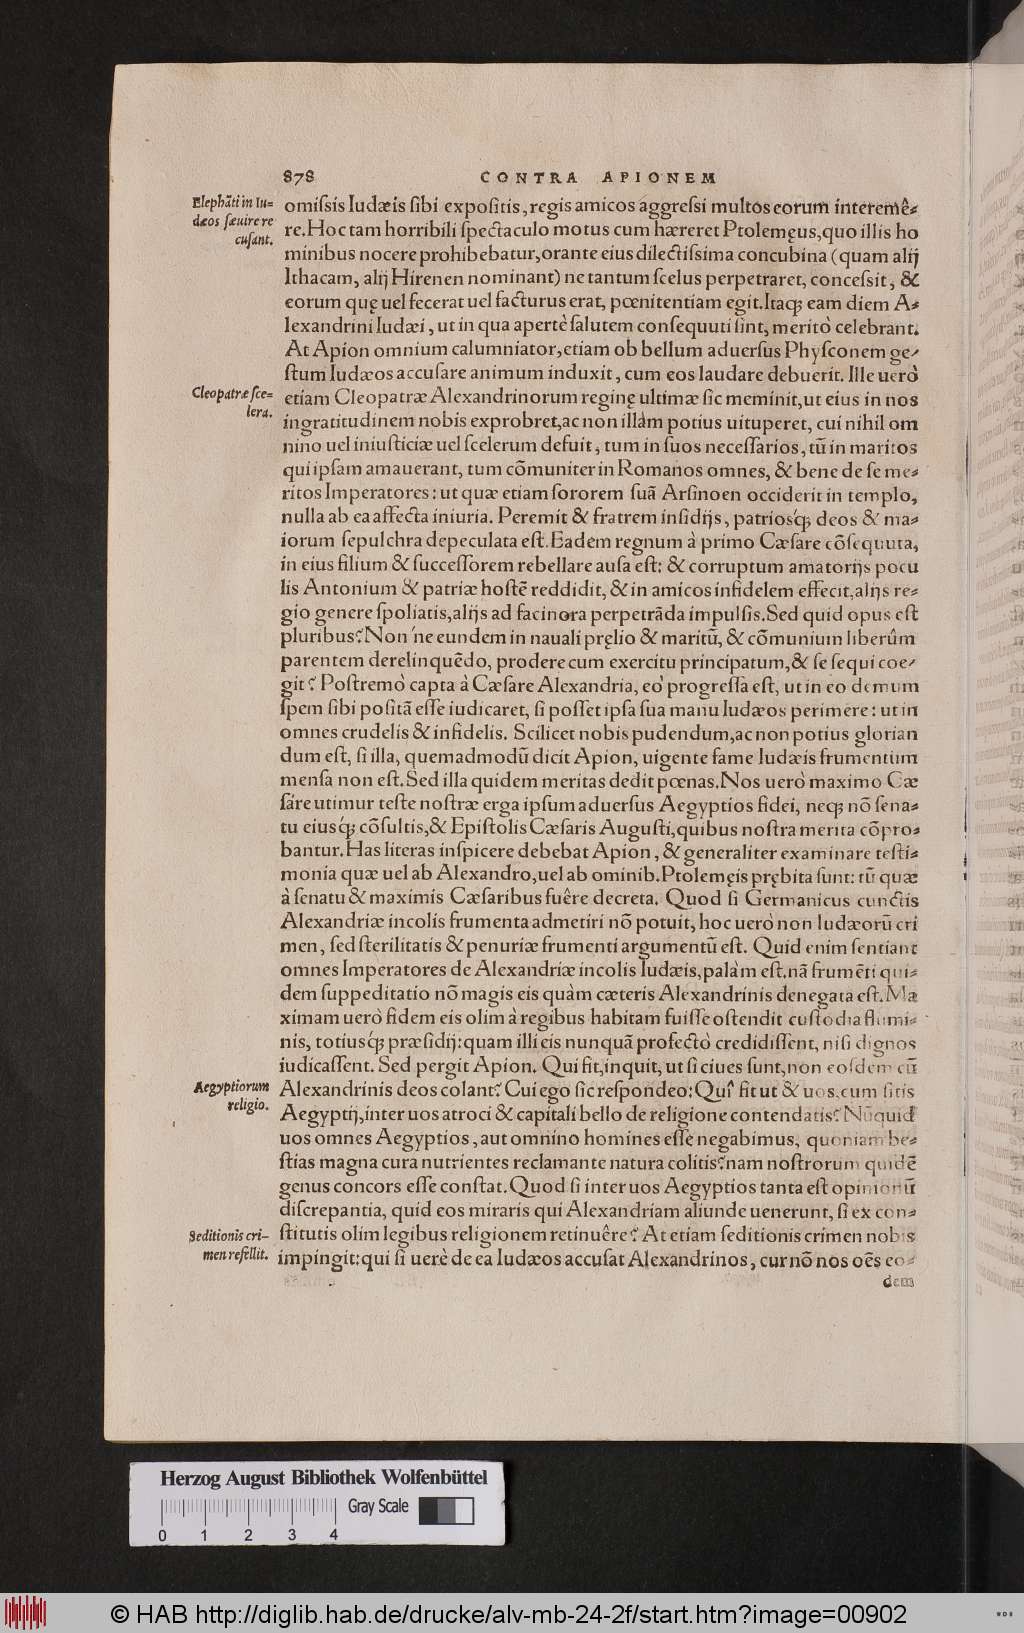 878 CONTRA APIONEM
Elephãti in Iu=
dæos sæuire re
cusant.
omiſsis Iudæis ſibi expoſitis, regis amicos aggreſsi multos eorum interemê=
re. Hoc tam horribili ſpectaculo motus cum hæreret Ptolemęus, quo illis ho
minibus nocere prohibebatur, orante eius dilectiſsima concubina (quam alij
Ithacam, alij Hirenen nominant) ne tantum ſcelus perpetraret, conceſsit, &
eorum quę uel fecerat uel facturus erat, pœnitentiam egit. Itaq; eam diem A=
lexandrini Iudæi, ut in qua apertè ſalutem conſequuti ſint, meritò celebrant.
At Apion omnium calumniator, etiam ob bellum aduerſus Phyſconem ge=
ſtum Iudæos accuſare animum induxit, cum eos laudare debuerit. Ille uerò
Cleopatræ ſce=
lera.
etiam Cleopatræ Alexandrinorum reginę ultimæ ſic meminit, ut eius in nos
ingratitudinem nobis exprobret, ac non illàm potius uituperet, cui nihil om
nino uel iniuſticiæ uel ſcelerum defuit, tum in ſuos neceſſarios, tũ in maritos
qui ipſam amauerant, tum cõmuniter in Romanos omnes, & bene de ſe me=
ritos Imperatores: ut quæ etiam ſororem ſuã Arſinoen occiderit in templo,
nulla ab ea affecta iniuria. Peremit & fratrem inſidijs, patriosq́; deos & ma=
iorum ſepulchra depeculata eſt. Eadem regnum à primo Cæſare cõſequuta,
in eius filium & ſucceſſorem rebellare auſa eſt: & corruptum amatorijs pocu
lis Antonium & patriæ hoſtẽ reddidit, & in amicos infidelem effecit, alijs re=
gio genere ſpoliatis, alijs ad facinora perpetrãda impulſis. Sed quid opus eſt
pluribus? Non ́ne eundem in nauali pręlio & maritũ, & cõmunium liberûm
parentem derelinquẽdo, prodere cum exercitu principatum, & ſe ſequi coe=
git? Poſtremò capta à Cæſare Alexandria, eò progreſſa eſt, ut in eo demum
ſpem ſibi poſitã eſſe iudicaret, ſi poſſet ipſa ſua manu Iudæos perimere: ut in
omnes crudelis & infidelis. Scilicet nobis pudendum, ac non potius glorian
dum eſt, ſi illa, quemadmodũ dicit Apion, uigente fame Iudæis frumentum
menſa non eſt. Sed illa quidem meritas dedit pœnas. Nos uerò maximo Cæ
ſare utimur teſte noſtræ erga ipſum aduerſus Aegyptios fidei, neq; nõ ſena=
tu eiusq́; cõſultis, & Epiſtolis Cæſaris Auguſti, quibus noſtra merita cõpro=
bantur. Has literas inſpicere debebat Apion, & generaliter examinare teſti=
monia quæ uel ab Alexandro, uel ab omnib. Ptolemęis prębita ſunt: tũ quæ
à ſenatu & maximis Cæſaribus fuêre decreta. Quod ſi Germanicus cunctis
Alexandriæ incolis frumenta admetiri nõ potuit, hoc uerò non Iudæorũ cri
men, ſed ſterilitatis & penuriæ frumenti argumentũ eſt. Quid enim ſentiant
omnes Imperatores de Alexandriæ incolis Iudæis, palàm eſt. nã frumẽti qui=
dem ſuppeditatio nõ magis eis quàm cæteris Alexandrinis denegata eſt. Ma
ximam uerò fidem eis olim à regibus habitam fuiſſe oſtendit cuſtodia flumi=
nis, totiusq́; præſidij: quam illi eis nunquã profectò credidiſſent, niſi dignos
iudicaſſent. Sed pergit Apion. Qui fit, inquit, ut ſi ciues ſunt, non eoſdem cũ
Aegyptiorum
religio.
Alexandrinis deos colant? Cui ego ſic reſpondeo: Quî fit ut & uos, cum ſitis
Aegyptij, inter uos atroci & capitali bello de religione contendatis? Nũquid
uos omnes Aegyptios, aut omnino homines eſſe negabimus, quoniam be=
ſtias magna cura nutrientes reclamante natura colitis? nam noſtrorum quidẽ
genus concors eſſe conſtat. Quod ſi inter uos Aegyptios tanta eſt opinionũ
diſcrepantia, quid eos miraris qui Alexandriam aliunde uenerunt, ſi ex con=
Seditionis cri=
men refellit.
ſtitutis olim legibus religionem retinuêre? At etiam ſeditionis crimen nobis
impingit: qui ſi uerè de ea Iudæos accuſat Alexandrinos, cur nõ nos oẽs eo=
dem
Herzog August Bibliothek Wolfenbüttel
Gray Scale
0 1 2 3 4
© HAB http://diglib.hab.de/drucke/alv-mb-24-2f/start.htm?image=00902